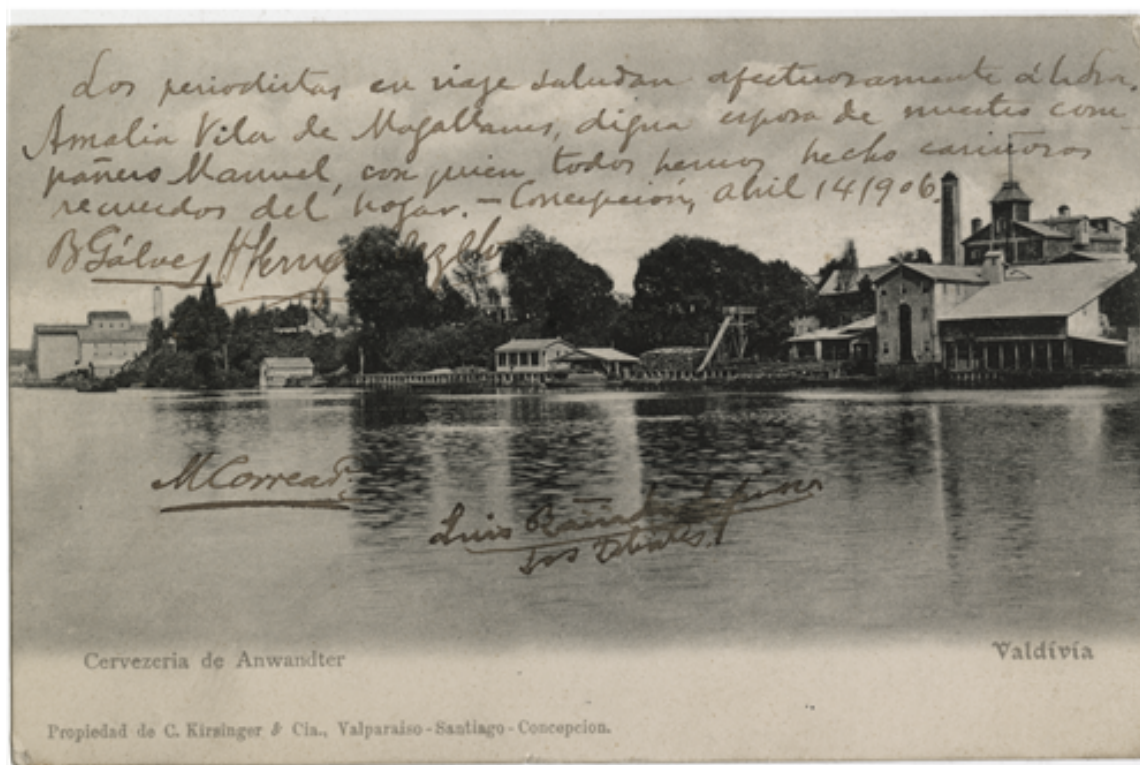 Los periodistas en viaje saludan afectuosamente á la Sra.
Amalia Vila de Magallanes, digna esposa de nuestro com-
pañero Manuel, con quien todos hemos hecho cariñosos
recuerdos del hogar. - Concepción, abril 14 1906.
B Gálvez H Hern
M Correa
Luis
Cervezeria de Anwandter
Valdívia
Propiedad de C. Kirsinger & Cia., Valparaiso - Santiago - Concepcion.